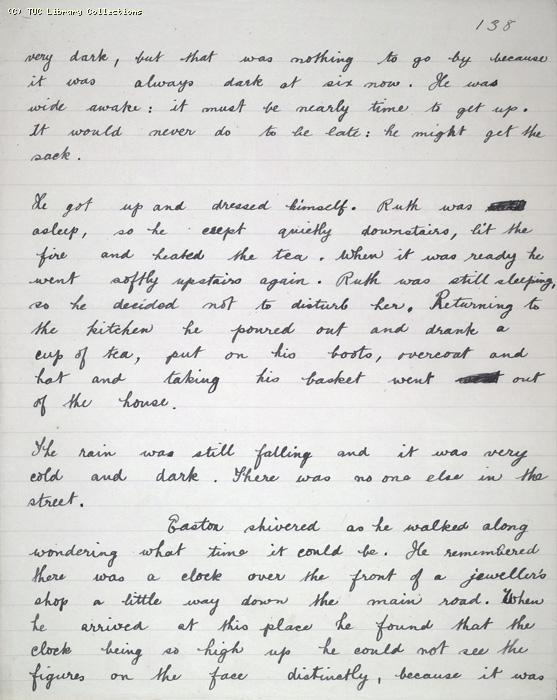 (C) TUC Library Collections
138
very dark, but that was nothing to go by because
it was always dark at six now. He was
wide awake: it must be nearly time to get up.
It would never do to be late: he might get the
sack.
He got up and dressed himself. Ruth was
asleep, so he crept quietly downstairs, lit the
fire and heated the tea. When it was ready he
went softly upstairs again. Ruth was still sleeping,
so he decided not to disturb her. Returning to
the kitchen he poured out and drank a
cup of tea, put on his boots, overcoat and
hat and taking his basket went out
of the house.
The rain was still falling and it was very
cold and dark. There was no one else in the
street.
Easton shivered as he walked along
wondering what time it could be. He remembered
there was a clock over the front of a jeweller's
shop a little way down the main road. When
he arrived at this place he found that the
clock being so high up he could not see the
figures on the face distinctly, because it was